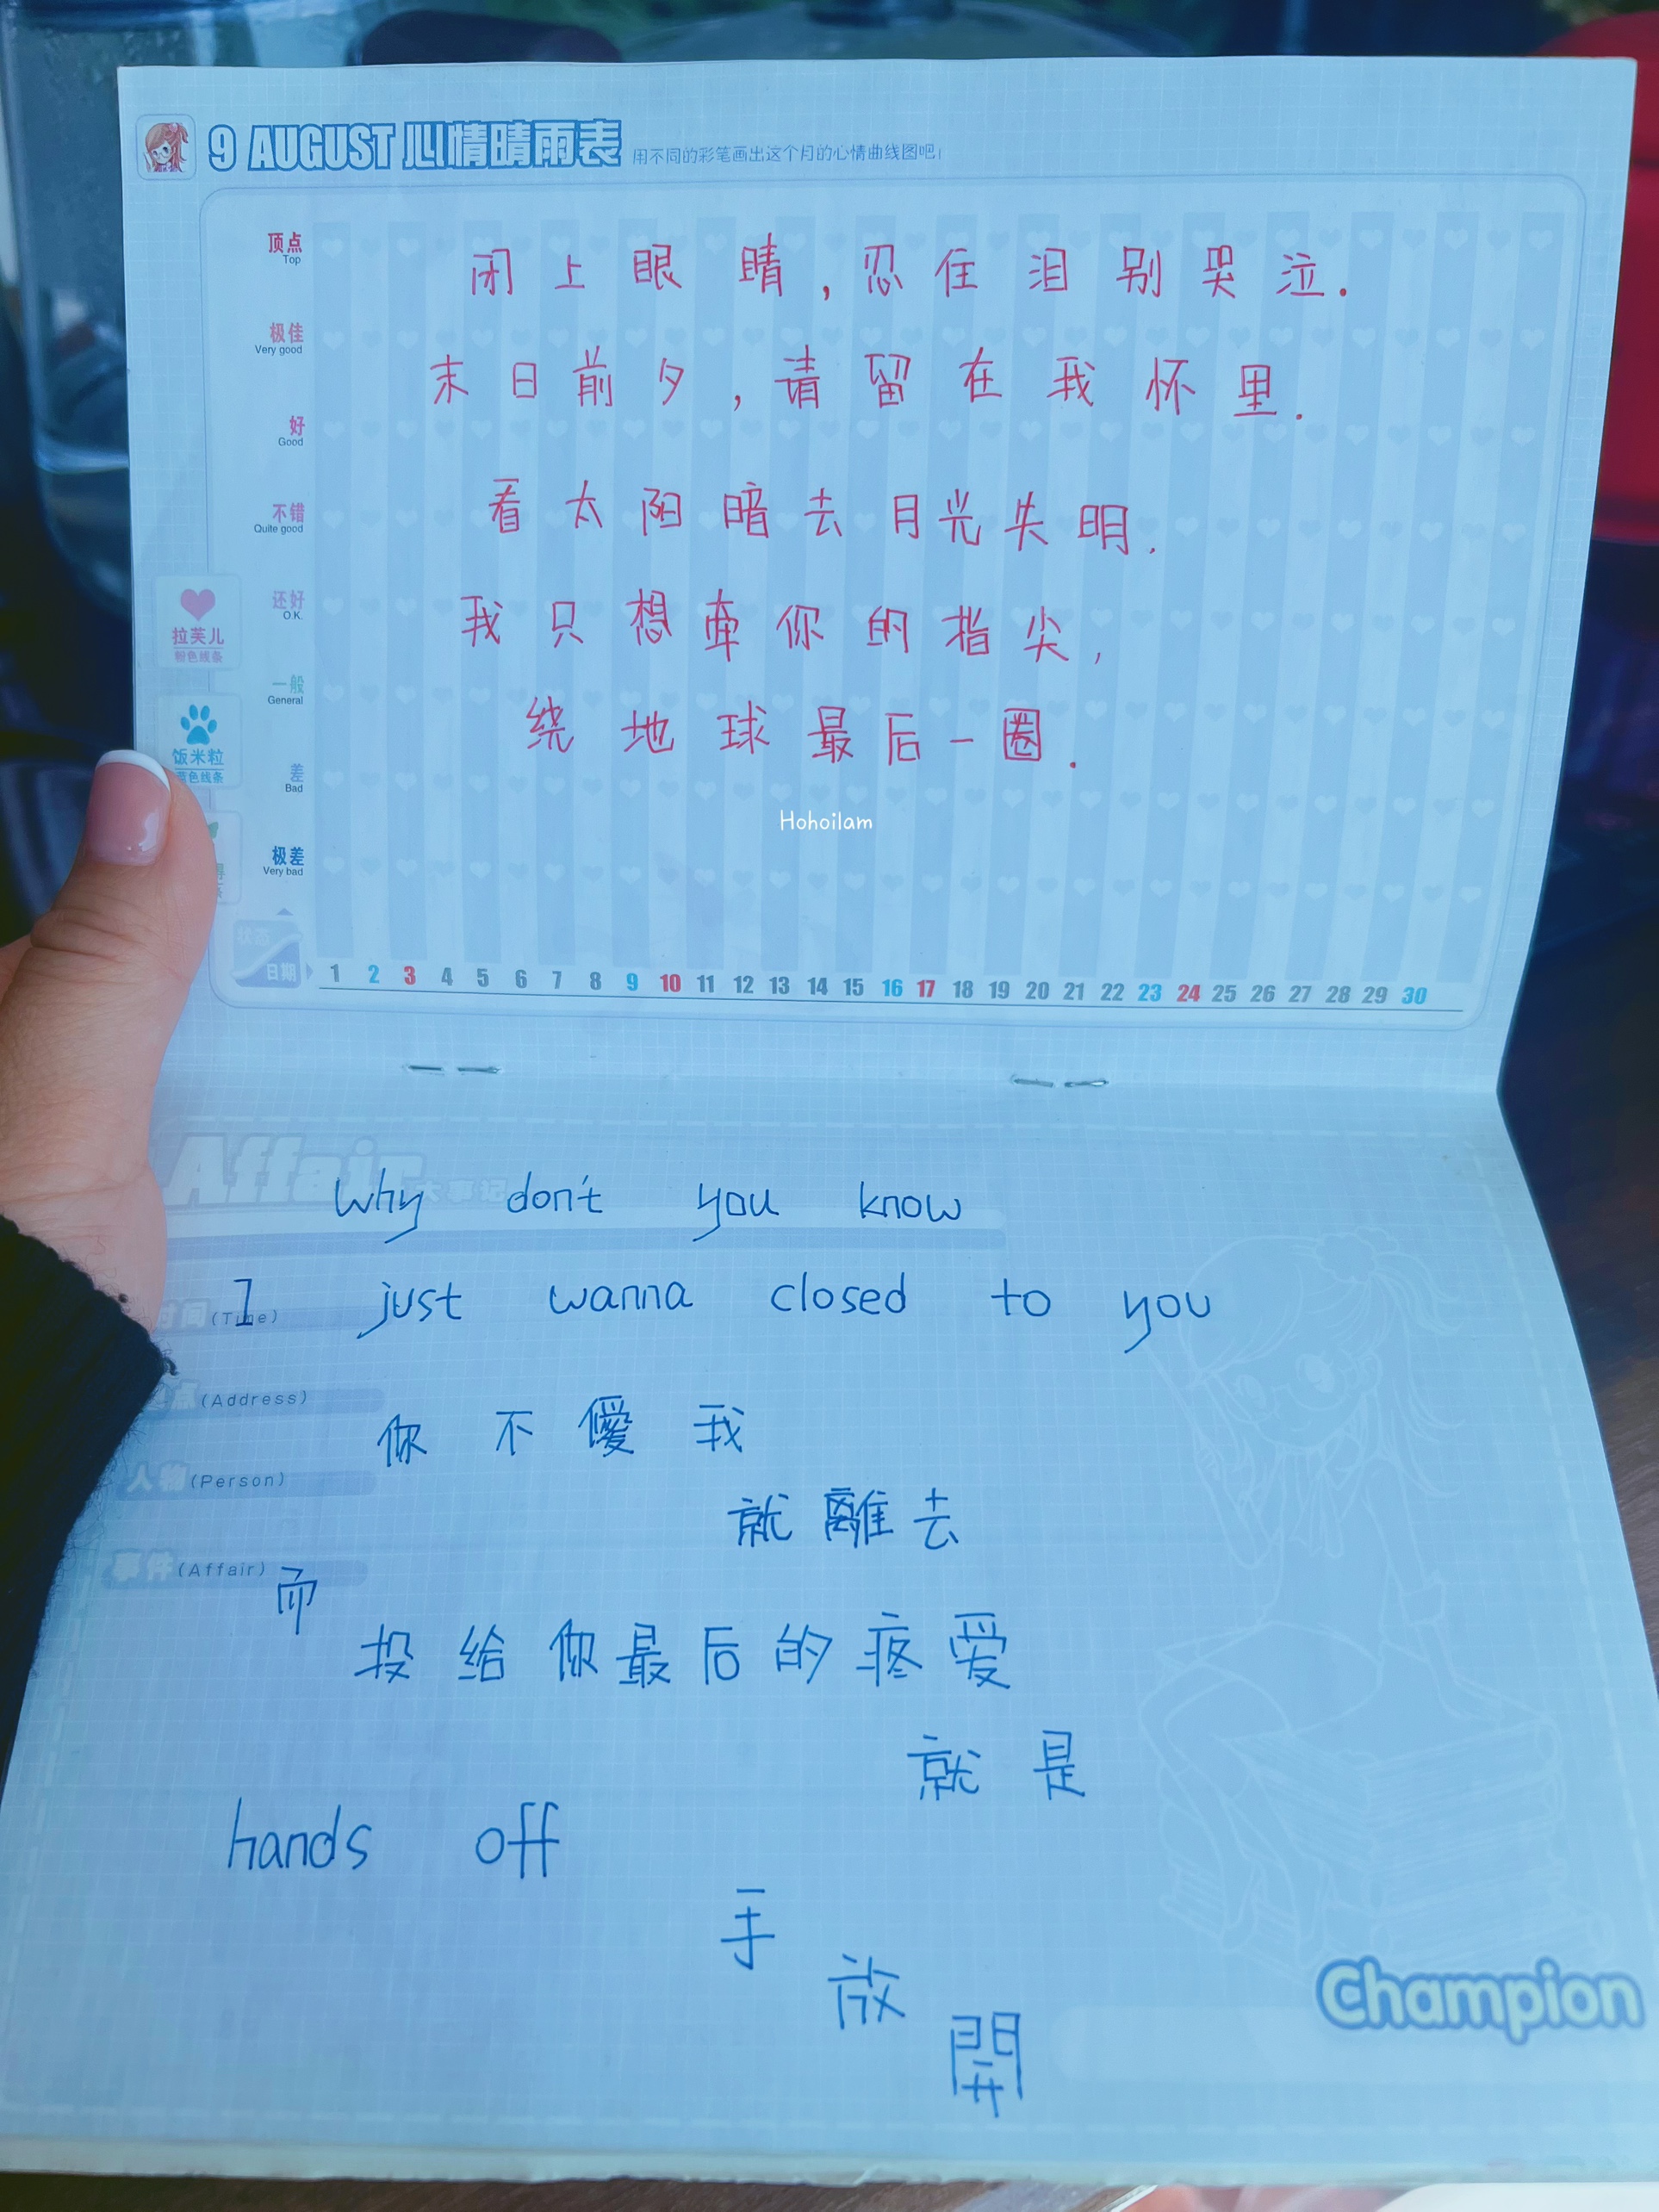 9 AUGUST 心情晴雨表 用不同的彩笔画出这个月的心情曲线图吧!
顶点
Top
闭上眼睛,忍住泪别哭泣.
极佳
Very good
末日前夕,请留在我怀里.
好
Good
不错
Quite good
看太阳暗去月光失明.
还好
O.K.
我只想牵你的指尖,
拉芙儿
粉色线条
一般
General
绕地球最后一圈.
饭米粒
蓝色线条
差
Bad
Hohoilam
极差
Very bad
状态
日期 1 2 3 4 5 6 7 8 9 10 11 12 13 14 15 16 17 18 19 20 21 22 23 24 25 26 27 28 29 30
Affair 大事记
why don't you know
时间 (Time)
I just wanna closed to you
(Address)
你不僾我
就離去
人物 (Person)
事件 (Affair)
而
投给你最后的疼爱
就是
hands off
手
放
開
Champion